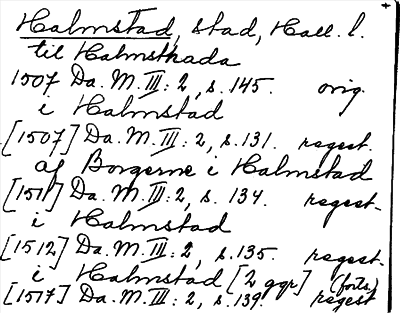 Halmstad, stad, Hall. l. +
til Halmsthada
1507 Da. M. III: 2, s. 145. orig.
i Halmstad
[1507] Da. M. III: 2, s. 131. regest.
af Borgerne i Halmstad
[1511] Da. M. III: 2, s. 134. regest.
i Halmstad
[1512] Da. M. III: 2, s. 135. regest.
i Halmstad [2 ggr] (forts.)
[1517] Da. M. III: 2, s. 139. regest